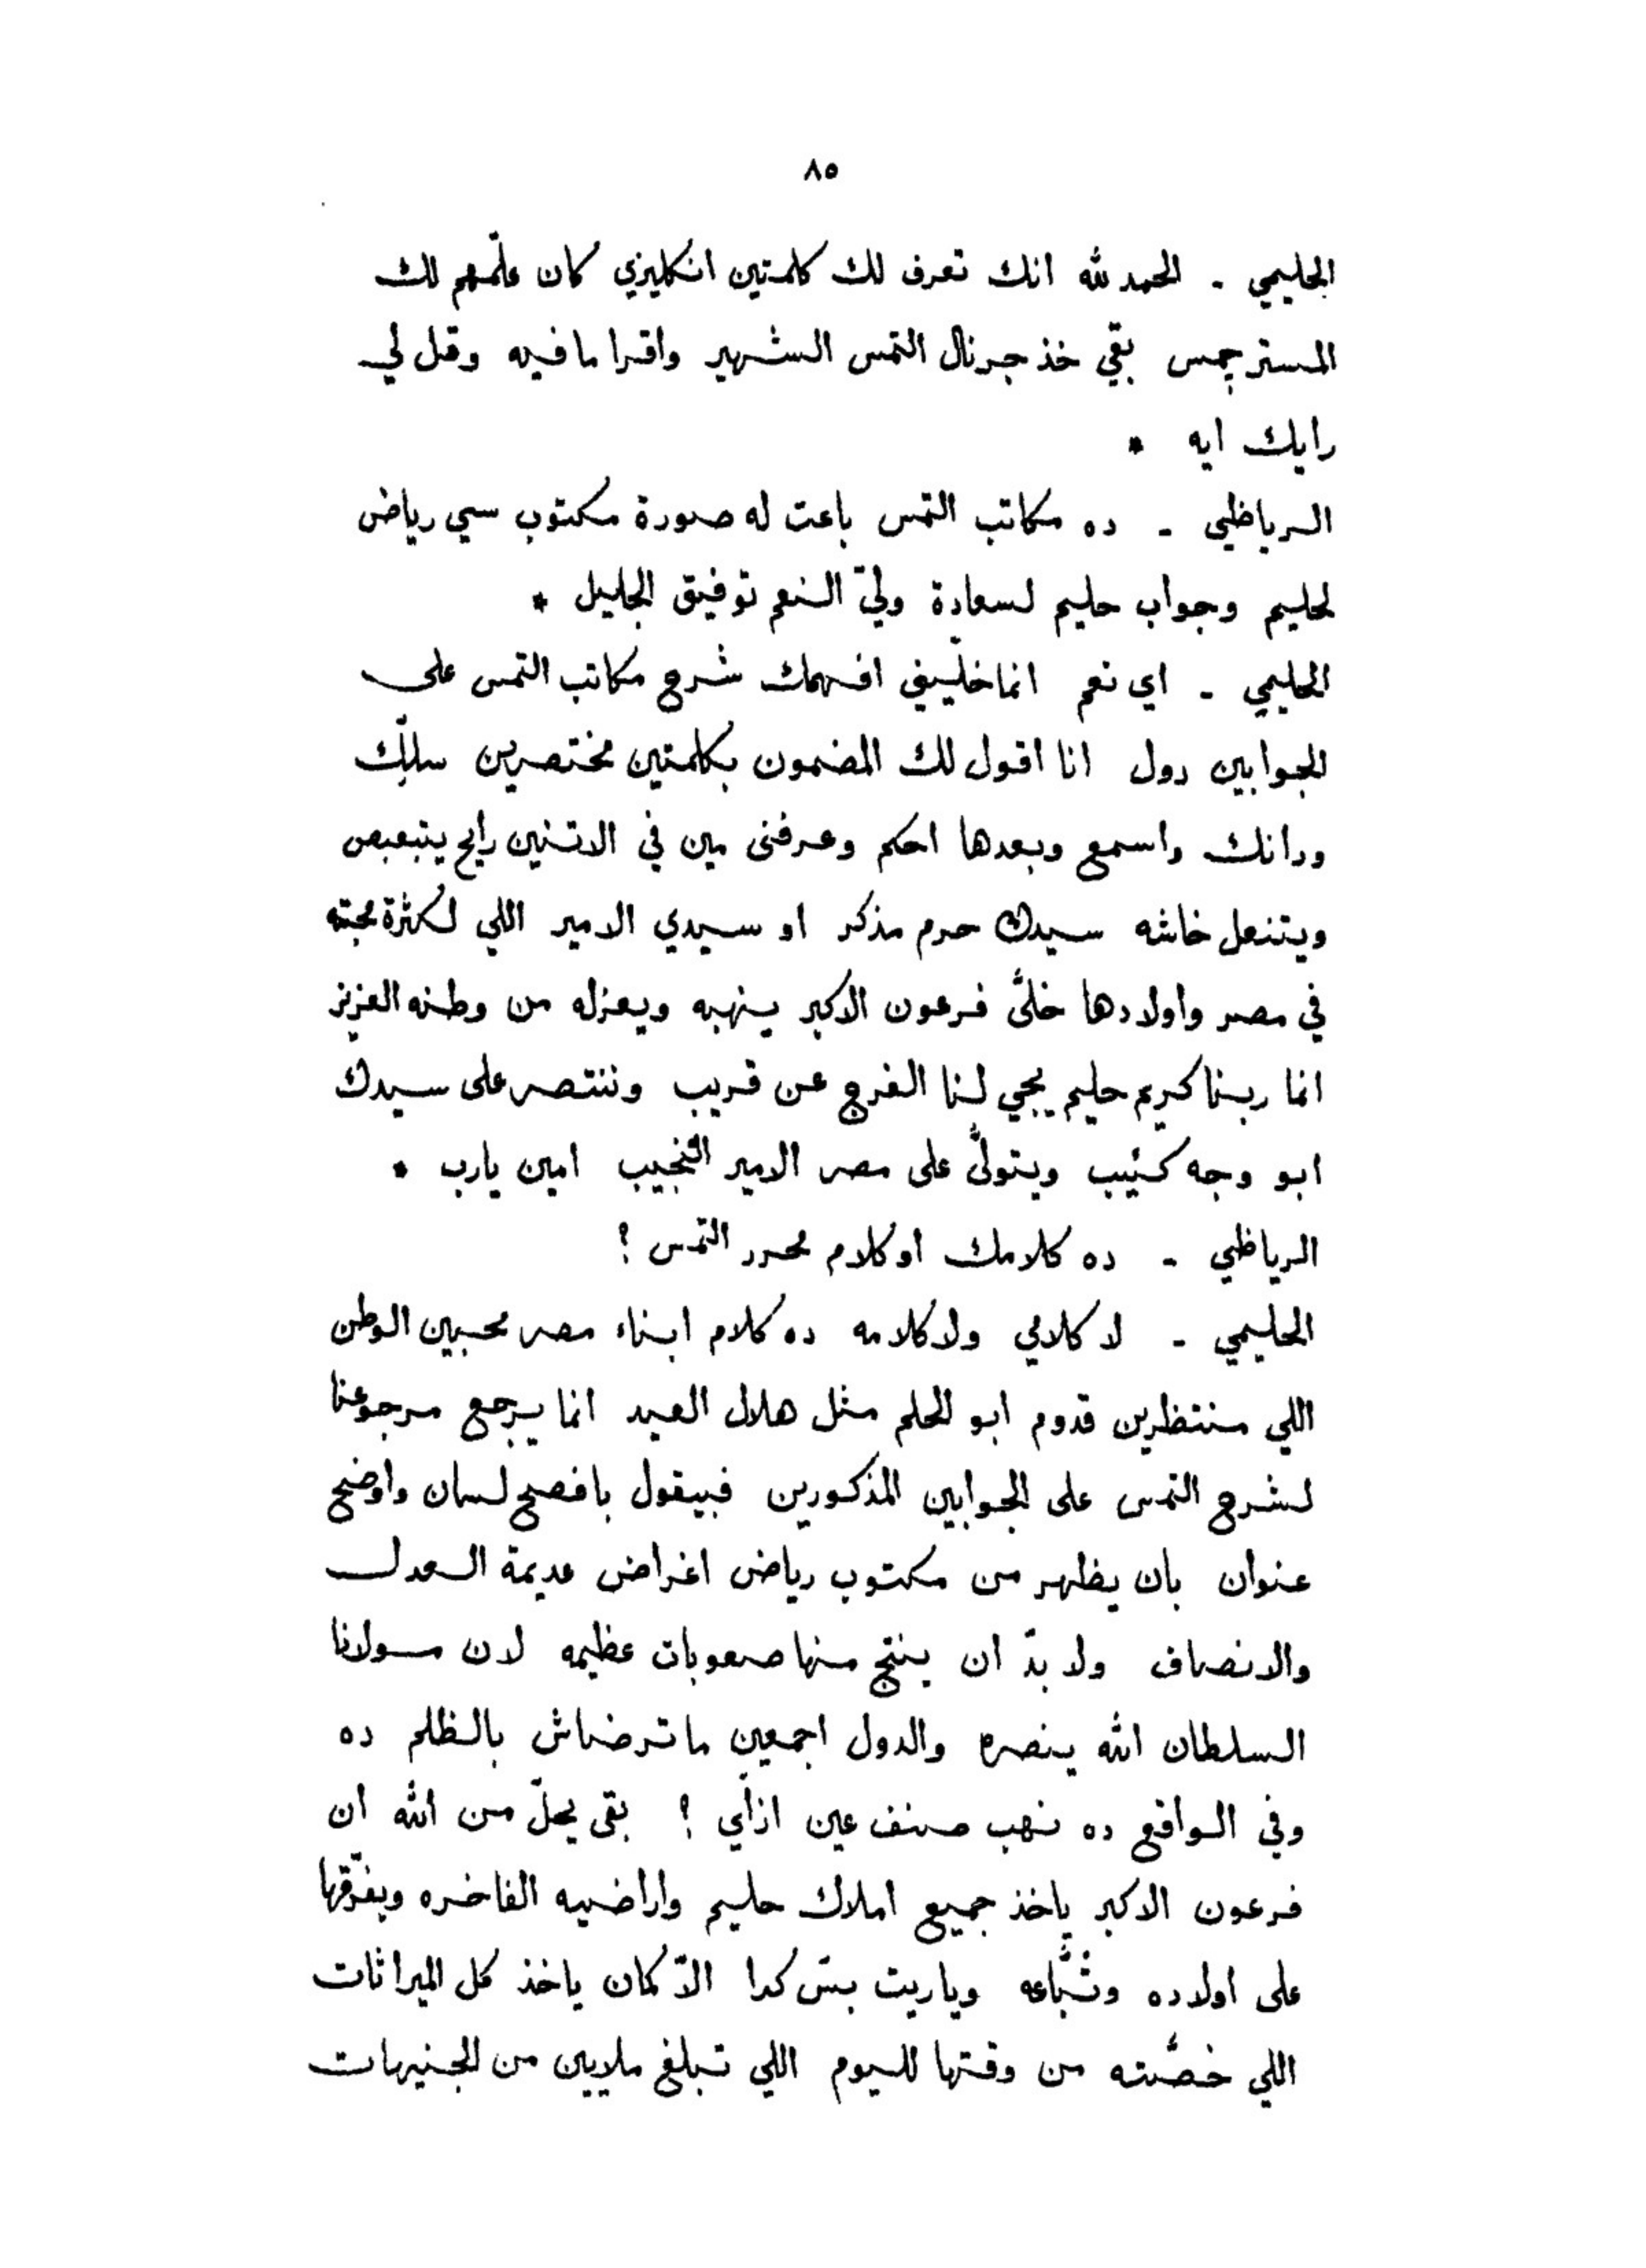 ٨٥
الحليمي - الحمد لله انك تعرف لك كلمتين انكليزي كان علّمهم لك
المستر جمس بقي خذ جرنال التمس الشهير واقرا ما فيه وقل لي
رايك ايه *
الرياظي - ده مكاتب التمس باعت له صورة مكتوب سي رياض
لحليم وجواب حليم لسعادة وليّ النعم توفيق الجليل *
الحليمي - اي نعم انما خلّيني افهمك شرح مكاتب التمس على
الجوابين دول انا اقول لك المضمون بكلمتين مختصرين سلّك
ودانك واسمع وبعدها احكم وعرفنى مين في الاتنين رايح يتبعبص
ويتنعل خاشه سيدك حرم مذكر او سيدي الامير اللي لكثرة محبته
في مصر واولادها خلىَّ فرعون الاكبر ينهبه ويعزله من وطنه العزيز
انما ربنا كريم حليم يجي لنا الفرج عن قريب وننتصر على سيدك
ابو وجه كئيب ويتولىَّ على مصر الامير النجيب امين يارب *
الرياظي - ده كلامك او كلام محرر التمس ؟
الحليمي - لا كلامي ولا كلامه ده كلام ابناء مصر محبين الوطن
اللي منتظرين قدوم ابو الحلم مثل هلال العيد انما يرجع مرجوعنا
لشرح التمس على الجوابين المذكورين فبيقول بافصح لسان واوضح
عنوان بان يظهر من مكتوب رياض اغراض عديمة العدل
والانصاف ولا بدّ ان ينتج منها صعوبات عظيمه لان مولانا
السلطان الله ينصره والدول اجمعين ما ترضاش بالظلم ده
وفي الواقع ده نهب صنف عين ازاّي ؟ بقى يحلّ من الله ان
فرعون الاكبر ياخذ جميع املاك حليم واراضيه الفاخره ويفرّقها
على اولاده وتُبَّاعه وياريت بسّ كدا الاّ كمان ياخذ كل الميراثات
اللي خصَّته من وقتها لليوم اللي تبلغ ملايين من الجنيهات